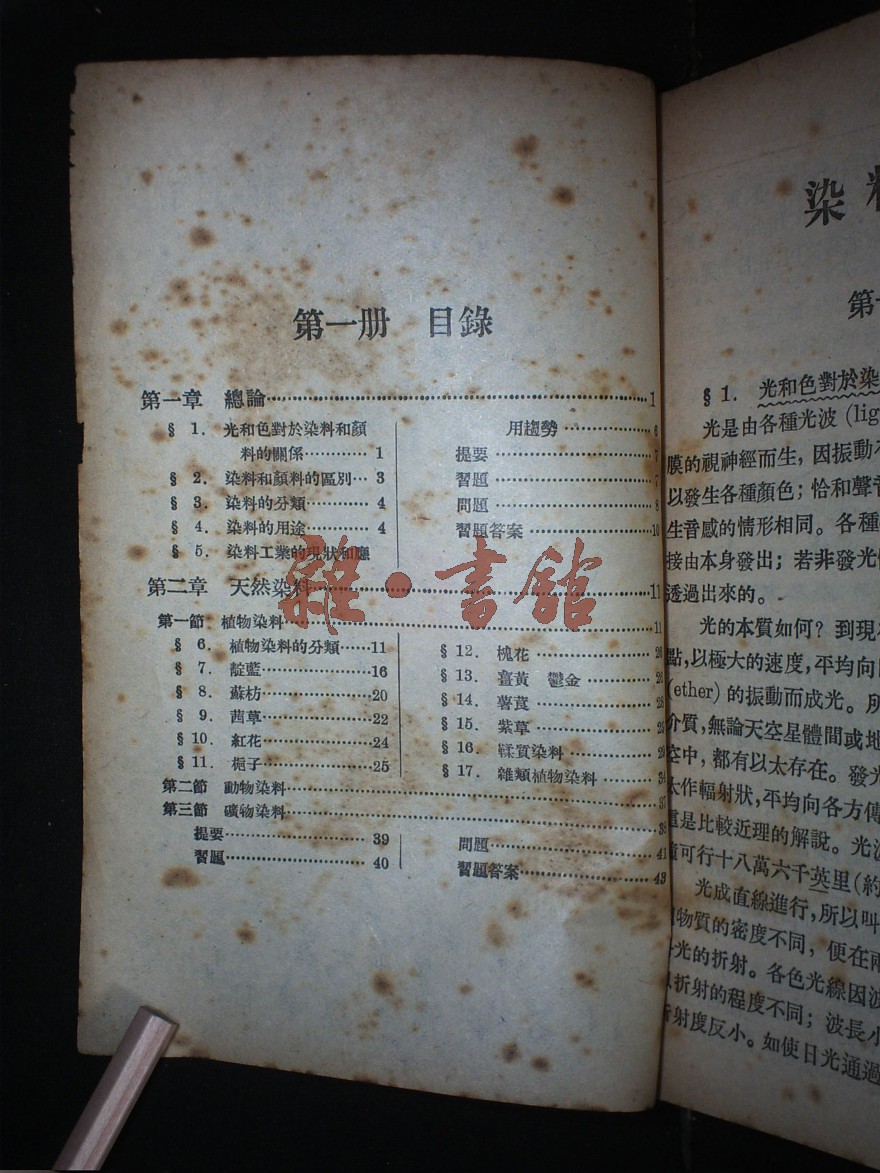 第一册 目錄
第一章 總論 1
§ 1. 光和色對於染料和顏
料的關係 1
§ 2. 染料和顏料的區別 3
§ 3. 染料的分類 4
§ 4. 染料的用途 4
§ 5. 染料工業的現狀和應
用趨勢 6
提要 7
習題 7
問題 8
習題答案 10
第二章 天然染料 11
第一節 植物染料 11
§ 6. 植物染料的分類 11
§ 7. 靛藍 16
§ 8. 蘇枋 20
§ 9. 茜草 22
§ 10. 紅花 24
§ 11. 梔子 25
§ 12. 槐花
§ 13. 薑黃 鬱金
§ 14. 薯莨
§ 15. 紫草
§ 16. 鞣質染料
§ 17. 雜類植物染料 34
第二節 動物染料 37
第三節 礦物染料 38
提要 39
習題 40
問題 41
習題答案 43
雜·書舘
染料
第
§ 1. 光和色對於染
光是由各種光波 (lig
膜的視神經而生，因振動
以發生各種顏色；恰和聲
生音感的情形相同。各種
接由本身發出；若非發光
透過出來的。
光的本質如何？到現
點，以極大的速度，平均向
(ether) 的振動而成光。所
介質，無論天空星體間或地
空中，都有以太存在。發光
太作輻射狀，平均向各方傳
重是比較近理的解說。光波
可行十八萬六千英里(約
光成直線進行，所以叫
物質的密度不同，便在兩
光的折射。各色光線因波
折射的程度不同；波長小
射度反小。如使日光通過